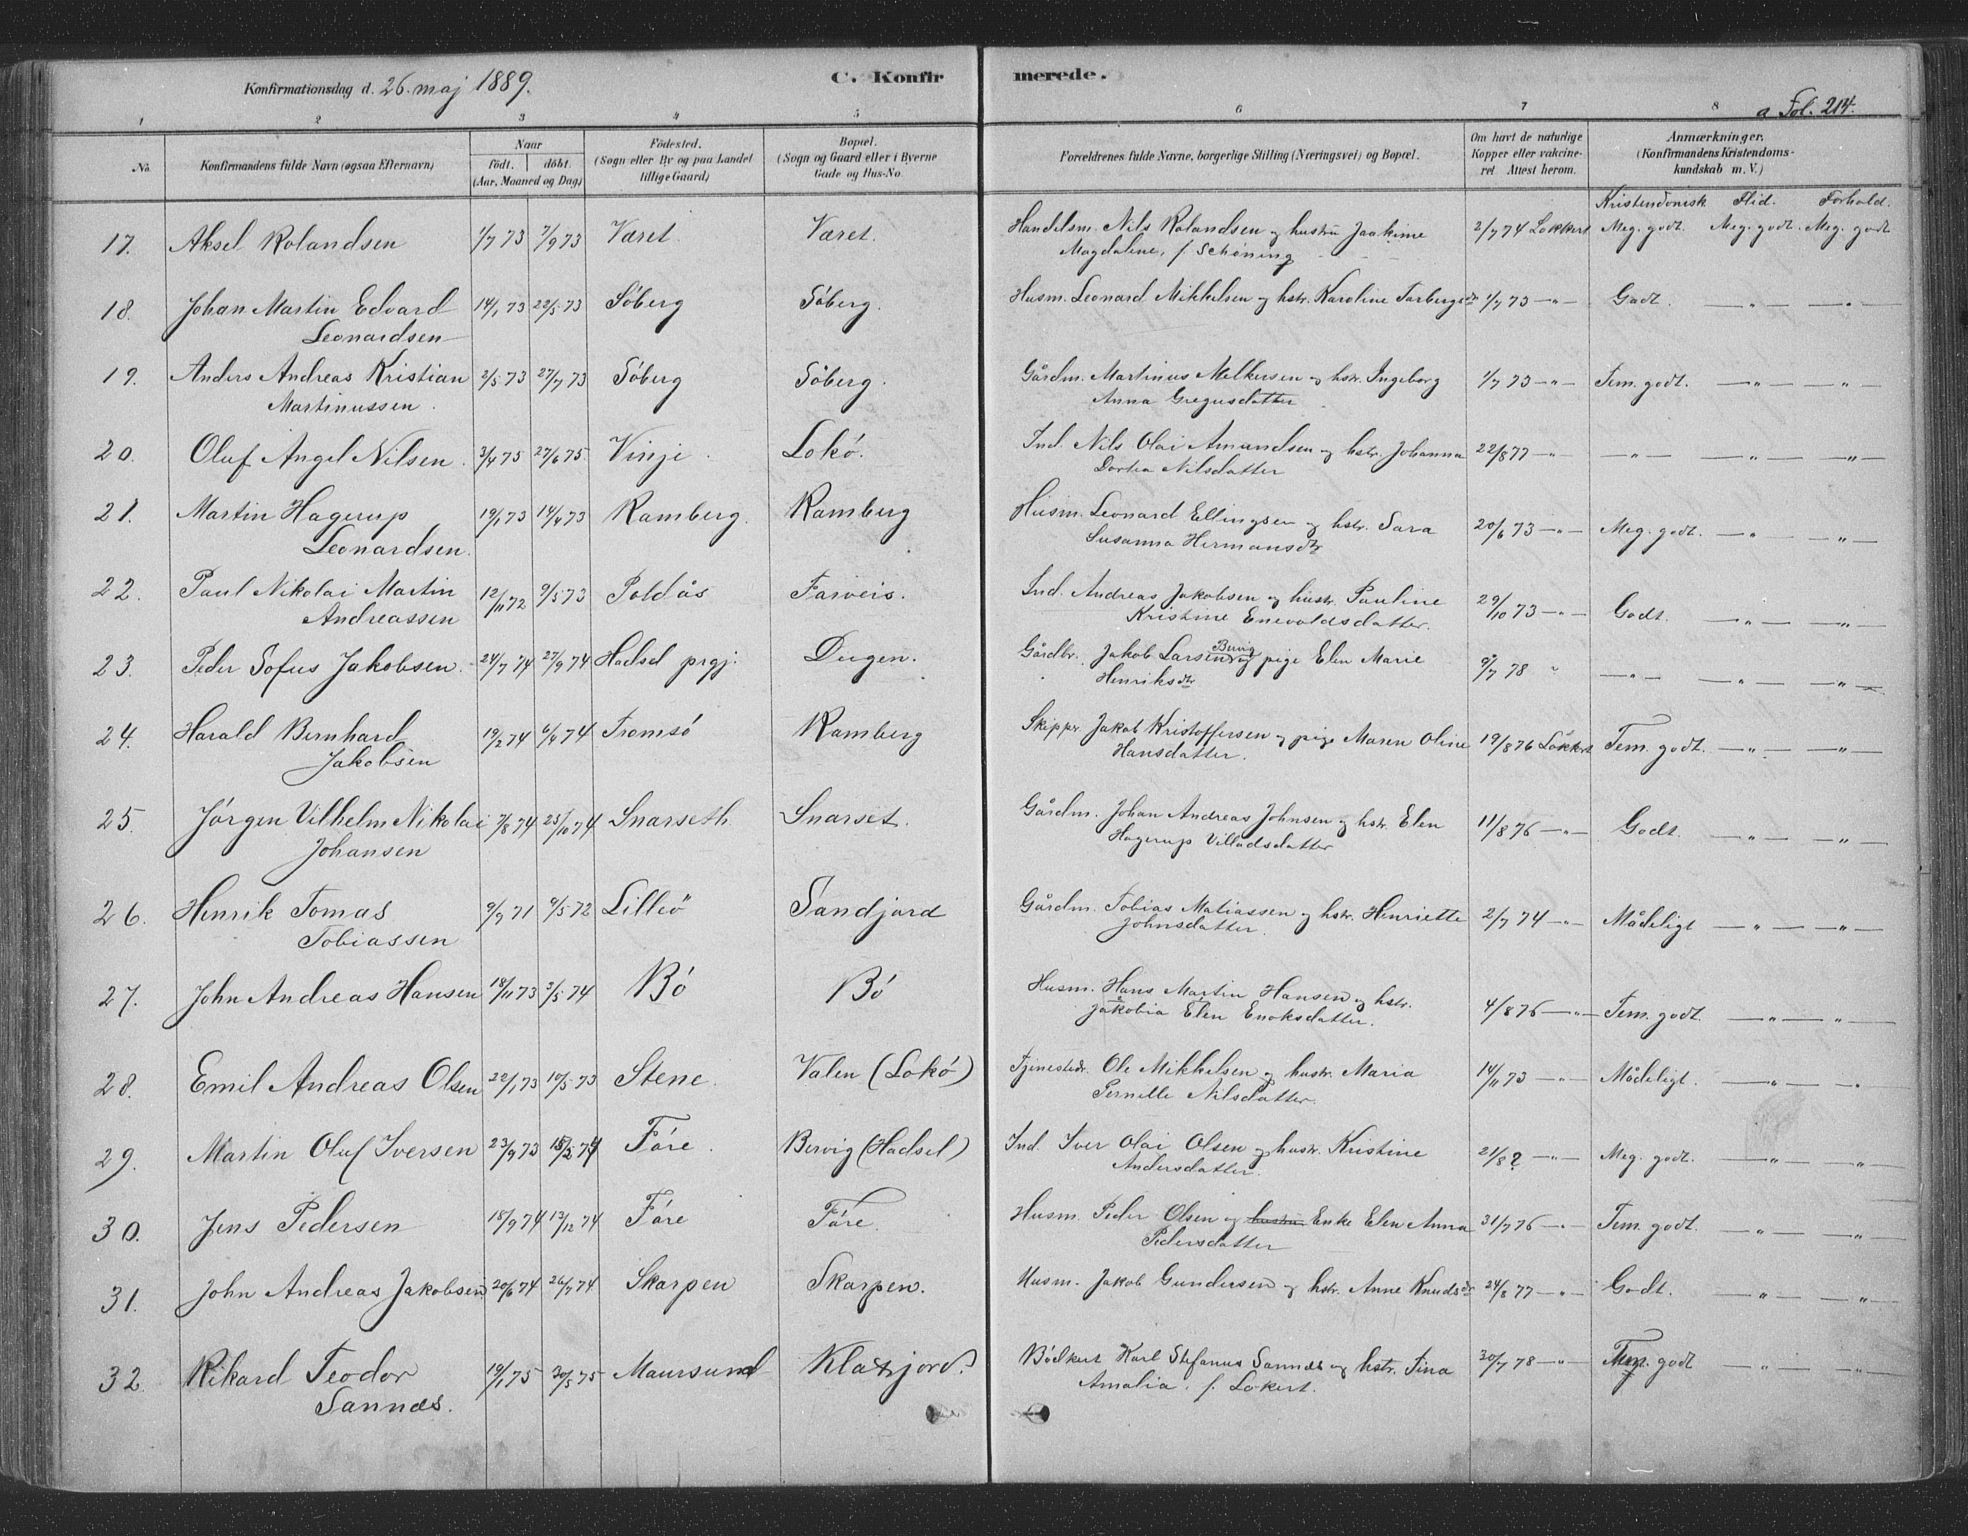 Konfirmationsdag d. 26. maj 1889.
C. Konfirmerede.
a Fol. 214.
1 2 3 4 5 6 7 8
No.
Konfirmandens fulde Navn (ogsaa Efternavn)
Naar
födt. döbt.
(Aar, Maaned og Dag)
Födested.
(Sogn eller By og paa Landet
tillige Gaard)
Bopæl.
(Sogn og Gaard eller i Byerne
Gade og Hus-No.
Forældrenes fulde Navne, borgerlige Stilling (Næringsvei) og Bopæl.
Om havt de naturlige
Kopper eller vakcineret
Attest herom.
Anmærkninger.
(Konfirmandens Kristendomskundskab
m. V.)
Kristendomsk Flid. Forhold.
17. Aksel Rolandsen 1/7 73 7/9 73 Været. Været. Handelsm. Nils Rolandsen og hustru Joakime 2/7 74 Lokkert Meg. godt. Meg. godt. Meg. godt
Magdalene, f. Schøning
18. Johan Martin Edvard 14/1 73 22/5 73 Söberg Söberg. Husm. Leonard Mikkelsen og hstr. Karoline Torbergsdtr 1/7 73 —"— Godt. —"— —"—
Leonardsen
19. Anders Andreas Kristian 2/5 73 27/7 73 Söberg Söberg. Gårdm. Martinus Melkersen og hstr. Ingeborg 1/7 73 —"— Tem. godt. —"— —"—
Martinussen. Anna Gregusdatter
20. Oluf Angel Nilsen. 3/4 75 27/6 75. Vinje. Lokö. Ind. Nils Olai Amundsen og hstr. Johanna 22/8 77 —"— —"— —"— —"—
Dortea Nilsdatter
21. Martin Hagerup 19/1 73 14/4 73 Ramberg. Ramberg Husm. Leonard Ellingsen og hstr. Sara 20/6 73 —"— Meg. godt. —"— —"—
Leonardsen. Susanna Hermansdtr
22. Paul Nikolai Martin 12/11 72 9/5 73 Poldås Farveis. Ind. Andreas Jakobsen og hustr. Pauline 29/10 73 —"— Godt. —"— —"—
Andreassen Kristine Enevoldsdatter.
23. Peder Sofus Jakobsen. 24/7 74 27/9 74 Hadsel prgj. Gårdbr. Jakob Larsen Bervig og pige Elen Marie 9/7 78 " —"— —"— —"—
Henriksdtr
24. Harald Bernhard 19/2 74 6/4 74 Tromsö Ramberg Skipper Jakob Kristoffersen og pige Maren Oline 19/8 76 Lökkert Tem. godt. —"— —"—
Jakobsen Hansdatter.
25. Jörgen Vilhelm Nikolai 7/8 74 25/10 74 Snarseth Snarset. Gårdm. Johan Andreas Johnsen og hstr. Elen 11/8 76 —"— Godt. —"— —"—
Johansen Hagerup Villadsdatter
26. Henrik Tomas 9/9 71 9/5 72 Lilleö Sandjord Gårdm. Tobias Matiassen og hstr. Henriette 2/7 74 —"— Mådeligt —"— —"—
Tobiassen Johnsdatter.
27. John Andreas Hansen 18/11 73 3/5 74 Bö Bö Husm. Hans Martin Hansen og hstr. 4/8 76 —"— Tem. godt. —"— —"—
Jakobia Elen Enoksdatter.
28. Emil Andreas Olsen 22/1 73 10/5 73 Stene. Valen (Lokö) Tjenestedr. Ole Mikkelsen og hustr. Maria 14/11 73 —"— Mådeligt. —"— —"—
Pernille Nilsdatter.
29. Martin Oluf Iversen 23/9 73 15/2 74 Före. Bervig (Hadsel) Ind. Iver Olai Olsen og hustr. Kristine 21/8 ? —"— Meg. godt. —"— —"—
Andersdatter.
30. Jens Pedersen 18/9 74 13/12 74 Före Före. Husm. Peder Olsen og hustru Enke Elen Anna 31/7 76 —"— Tem. godt. —"— —"—
Pedersdatter
31. John Andreas Jakobsen 20/6 74 26/7 74 Skarpen Skarpen. Husm. Jakob Gundersen og hstr. Anne Knudsdr 24/8 77 —"— Godt. —"— —"—
32. Rikard Teodor 19/1 75 30/5 75 Maursund Klaxjord. Bödkert Karl Stefanus Sannes og hstr. Tina 30/7 78 —"— Tem. godt —"— —"—
Sannæs. Amalia. f. Lokert.